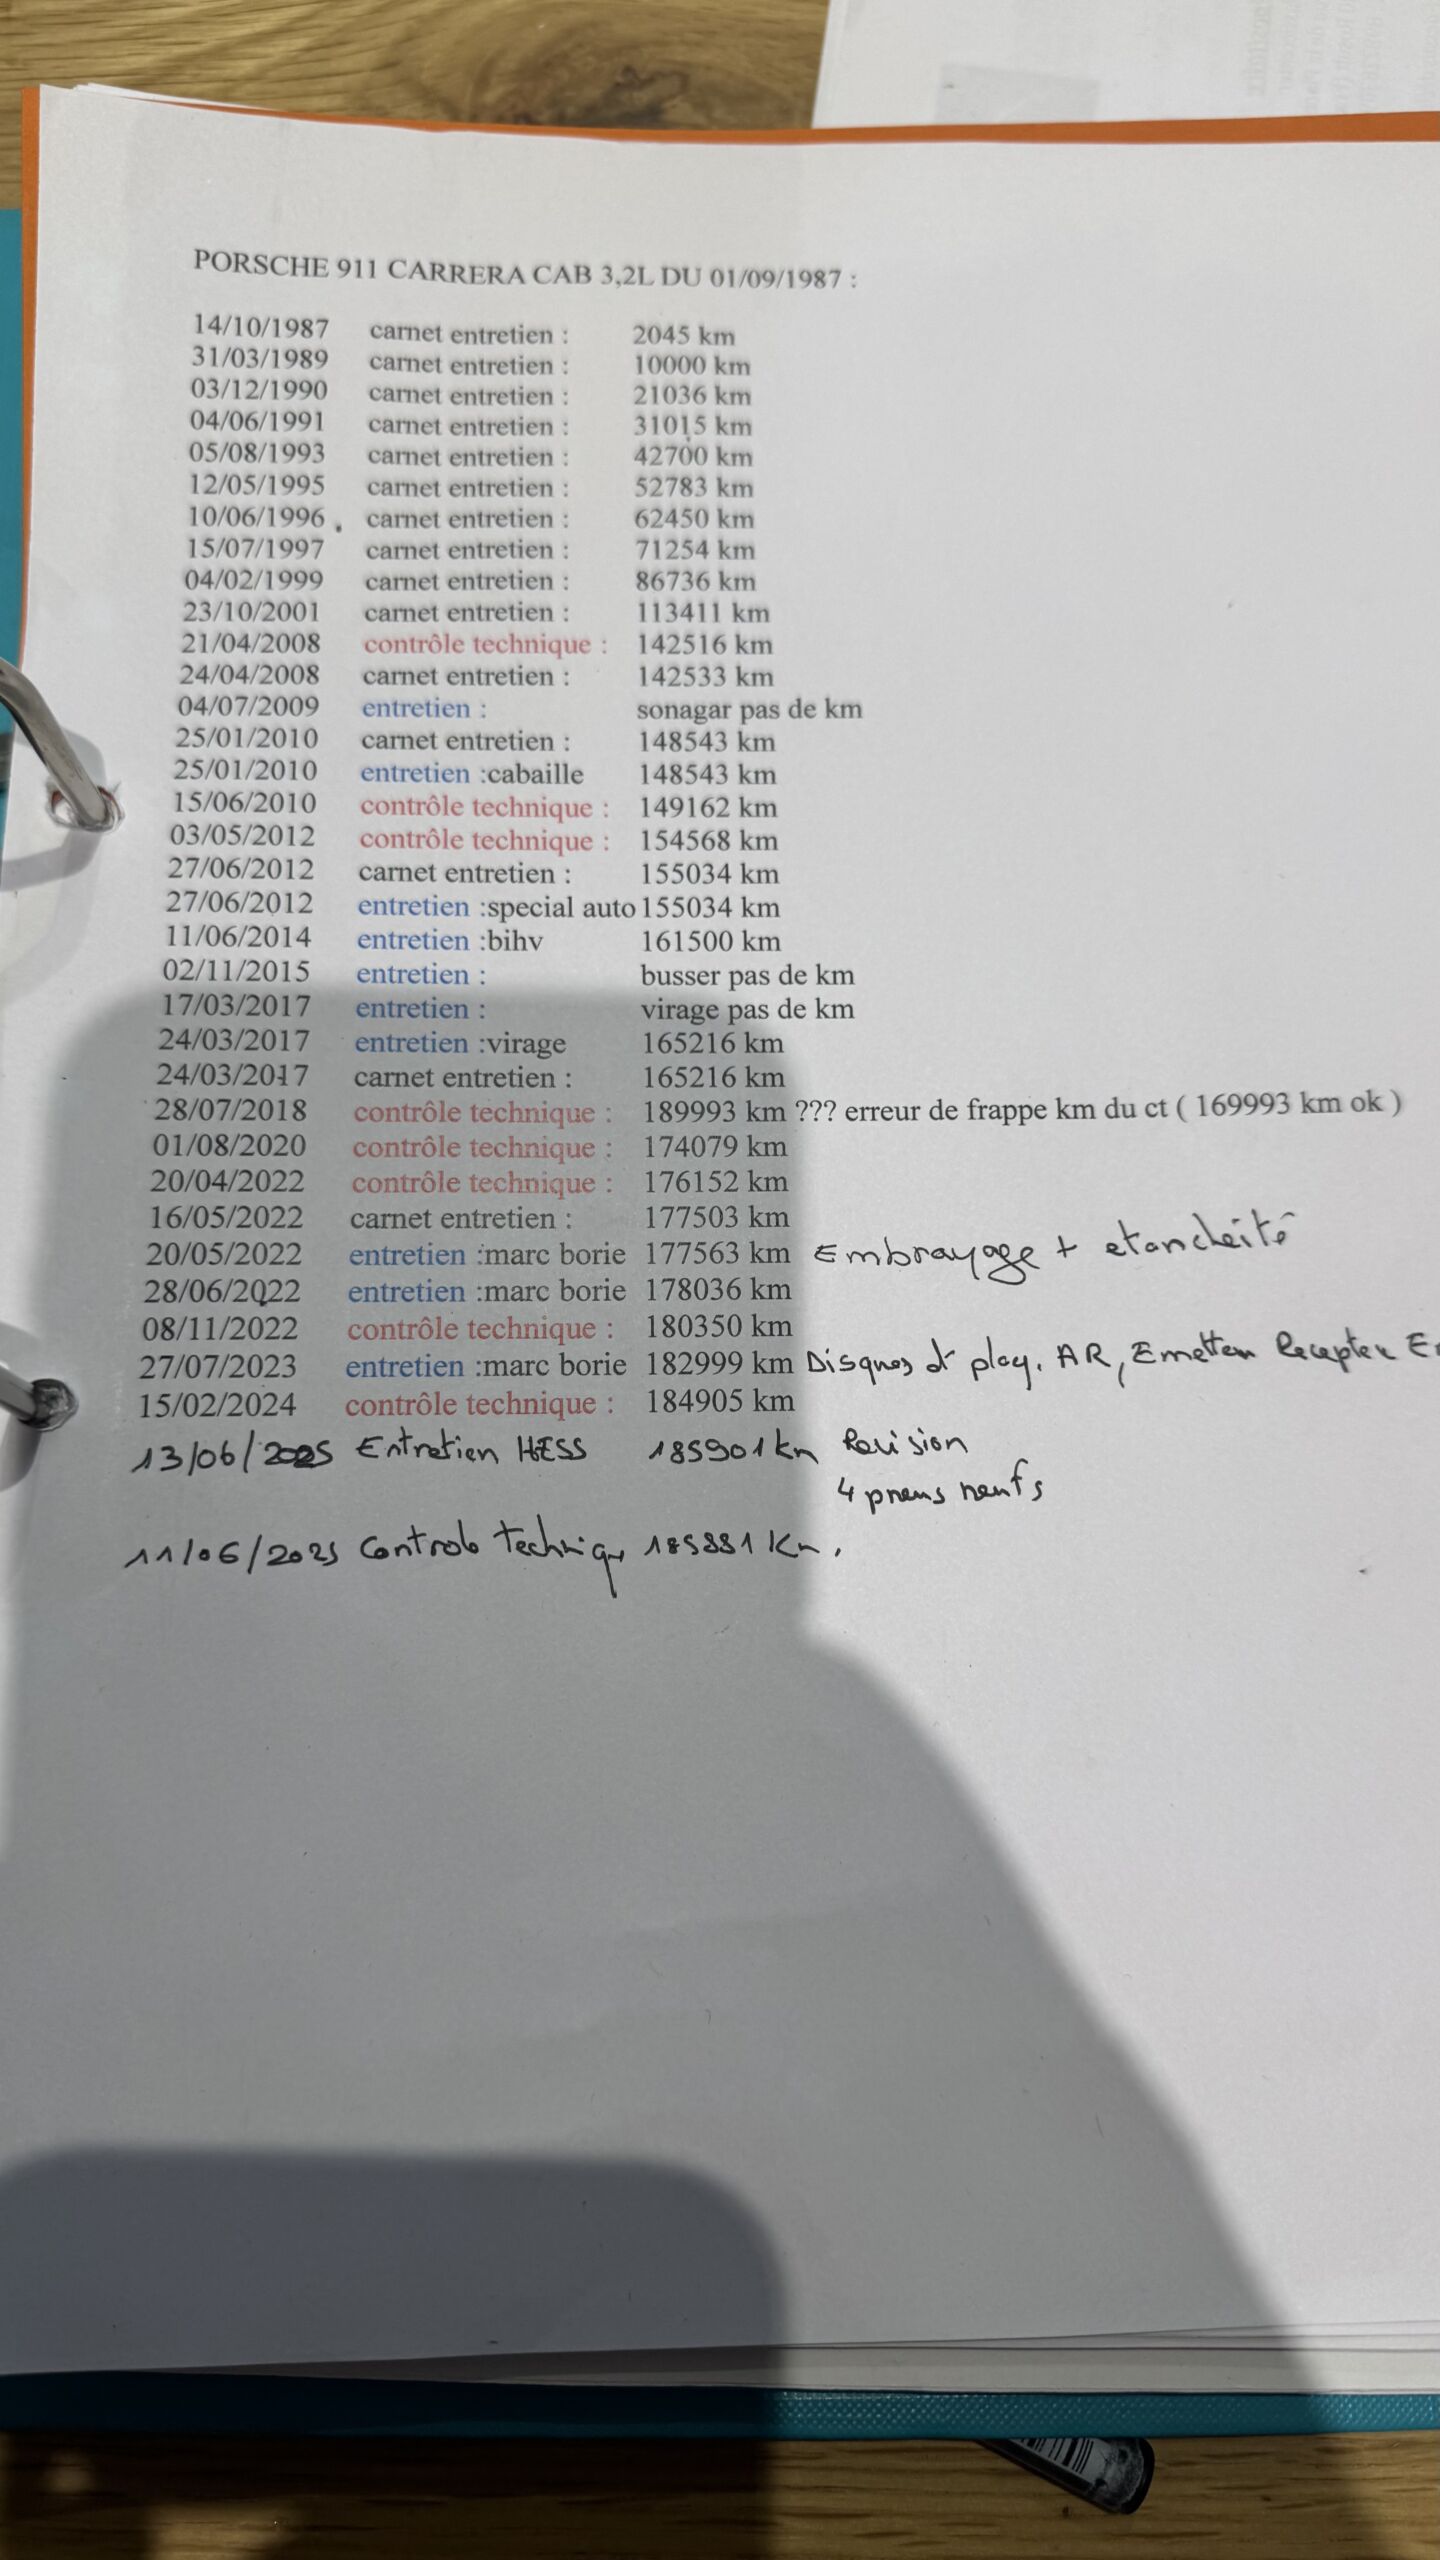 PORSCHE 911 CARRERA CAB 3,2L DU 01/09/1987 :
14/10/1987 carnet entretien : 2045 km
31/03/1989 carnet entretien : 10000 km
03/12/1990 carnet entretien : 21036 km
04/06/1991 carnet entretien : 31015 km
05/08/1993 carnet entretien : 42700 km
12/05/1995 carnet entretien : 52783 km
10/06/1996 carnet entretien : 62450 km
15/07/1997 carnet entretien : 71254 km
04/02/1999 carnet entretien : 86736 km
23/10/2001 carnet entretien : 113411 km
21/04/2008 contrôle technique : 142516 km
24/04/2008 carnet entretien : 142533 km
04/07/2009 entretien : sonagar pas de km
25/01/2010 carnet entretien : 148543 km
25/01/2010 entretien :cabaille 148543 km
15/06/2010 contrôle technique : 149162 km
03/05/2012 contrôle technique : 154568 km
27/06/2012 carnet entretien : 155034 km
27/06/2012 entretien :special auto 155034 km
11/06/2014 entretien :bihv 161500 km
02/11/2015 entretien : busser pas de km
17/03/2017 entretien : virage pas de km
24/03/2017 entretien :virage 165216 km
24/03/2017 carnet entretien : 165216 km
28/07/2018 contrôle technique : 189993 km ??? erreur de frappe km du ct ( 169993 km ok )
01/08/2020 contrôle technique : 174079 km
20/04/2022 contrôle technique : 176152 km
16/05/2022 carnet entretien : 177503 km
20/05/2022 entretien :marc borie 177563 km Embrayage + etancheité
28/06/2022 entretien :marc borie 178036 km
08/11/2022 contrôle technique : 180350 km
27/07/2023 entretien :marc borie 182999 km Disques et plaq. AR, Emetteur Recepteur
15/02/2024 contrôle technique : 184905 km
13/06/2025 Entretien HESS 185901 km Revision
4 pneus neufs
11/06/2025 Controle technique Km.